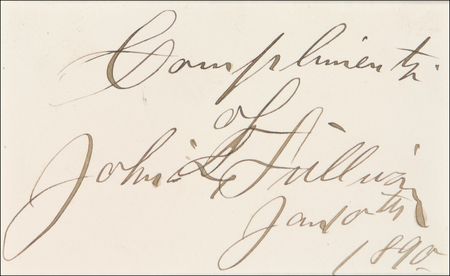 Compliments
of
John L Sullivan
Jan 10th
1890